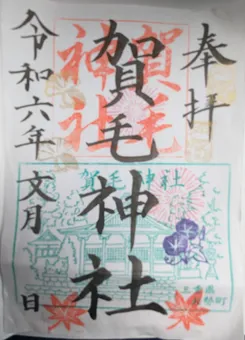 奉拝
賀毛
神社
賀毛神社
令和六年文月 日
賀毛神社